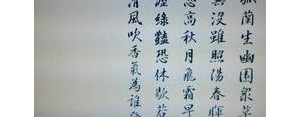 孤蘭生幽園眾草
蕪沒雖照陽春暉
悲高秋月飛霜早
瀝綠豔恐休歇若
清風吹香氣為誰發